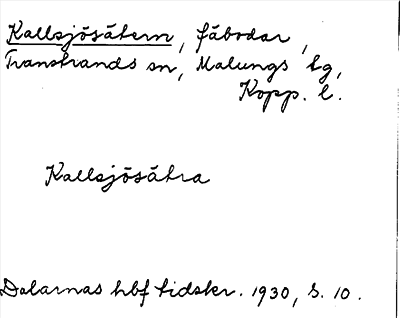 Kallsjösätern, fäbodar,
Transtrands sn, Malungs tg,
Kopp. l.
Kallsjösätra
Dalarnas hbf tidskr. 1930, s. 10.